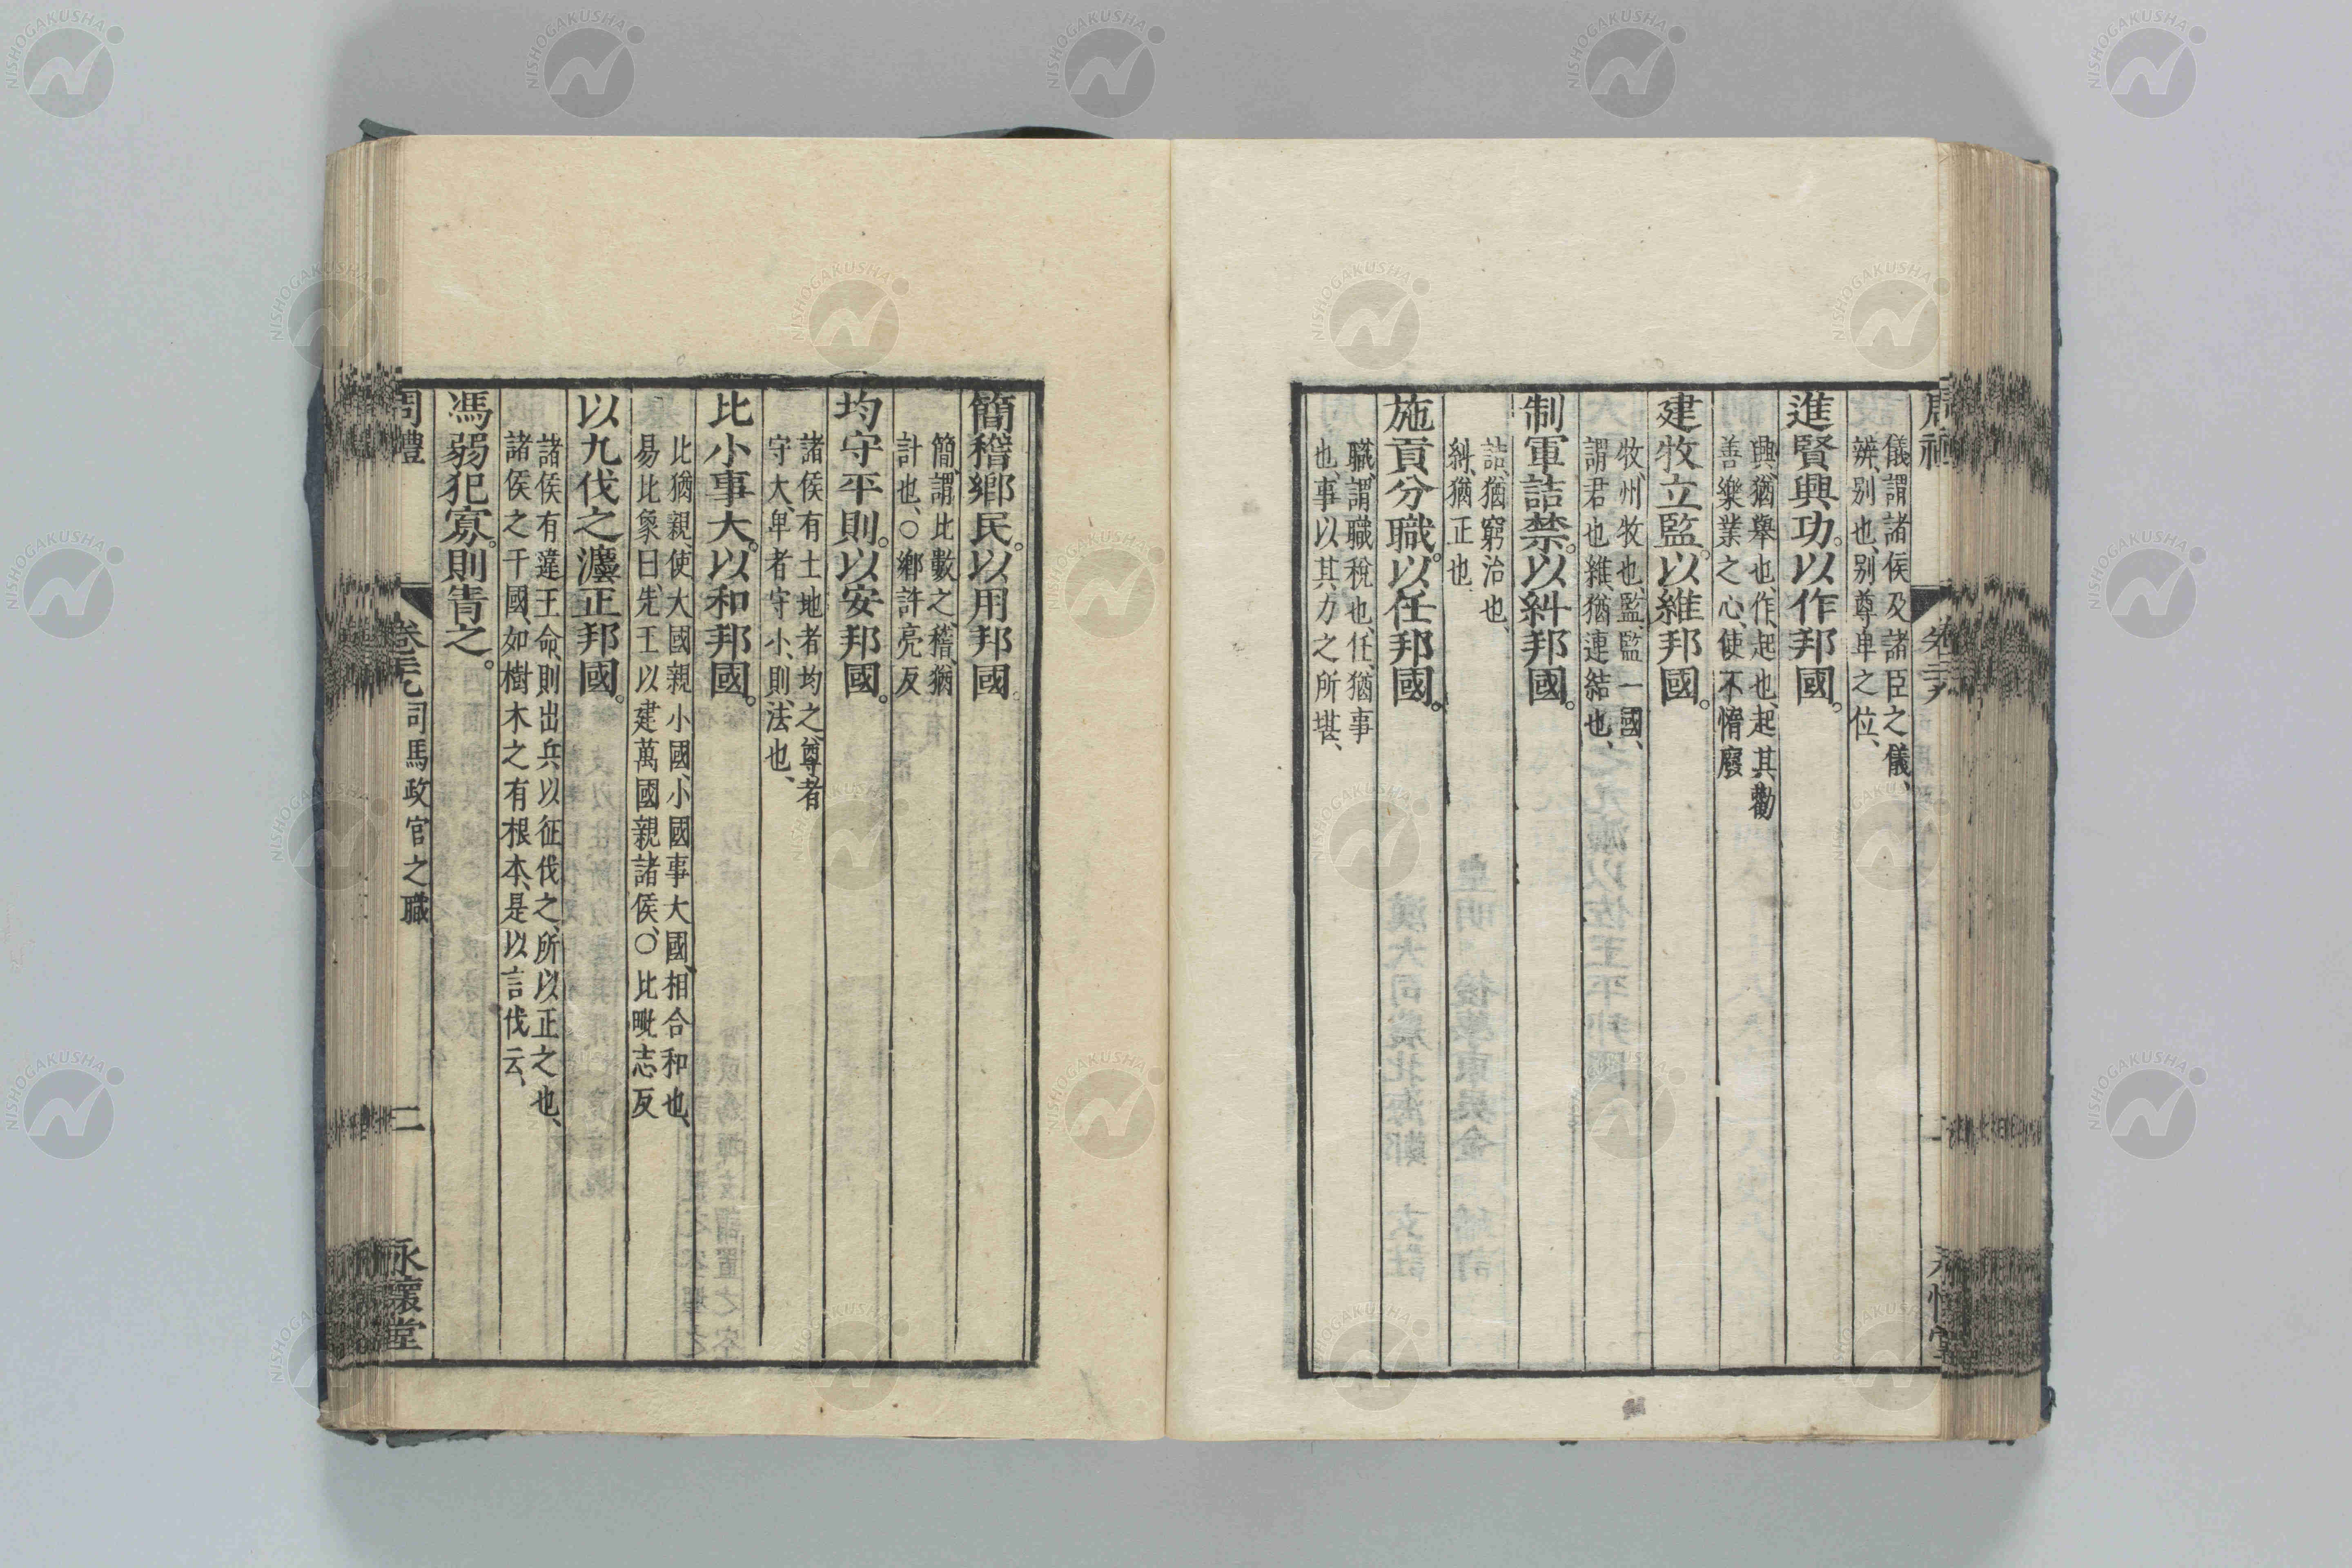 儀謂諸侯及諸臣之儀、
辨、别也、别尊卑之位、
進賢興功。以作邦國。
興、猶舉也、作、起也、起其勸
善樂業之心、使不惰廢
建牧立監。以維邦國。
牧、州牧也、監、監一國、
謂君也、維、猶連結也、
制軍詰禁。以糾邦國。
詰、猶窮治也、
糾、猶正也
施貢分職。以任邦國。
職、謂職稅也、任、猶事
也、事以其力之所堪、
簡稽鄉民。以用邦國。
簡、謂比數之、稽、猶
計也、○鄉許亮反
均守平則。以安邦國。
諸侯有土地者均之、尊者
守大、卑者守小、則、法也、
比小事大。以和邦國。
比猶親使大國親小國、小國事大國、相合和也、
易比象曰、先王以建萬國親諸侯、○比毗志反
以九伐之灋正邦國。
諸侯有違王命、則出兵以征伐之、所以正之也、
諸侯之于國、如樹木之有根本、是以言伐云、
馮弱犯寡。則眚之。
周禮 卷二十九 司馬政官之職 二 永懷堂
NISHOGAKUSHA